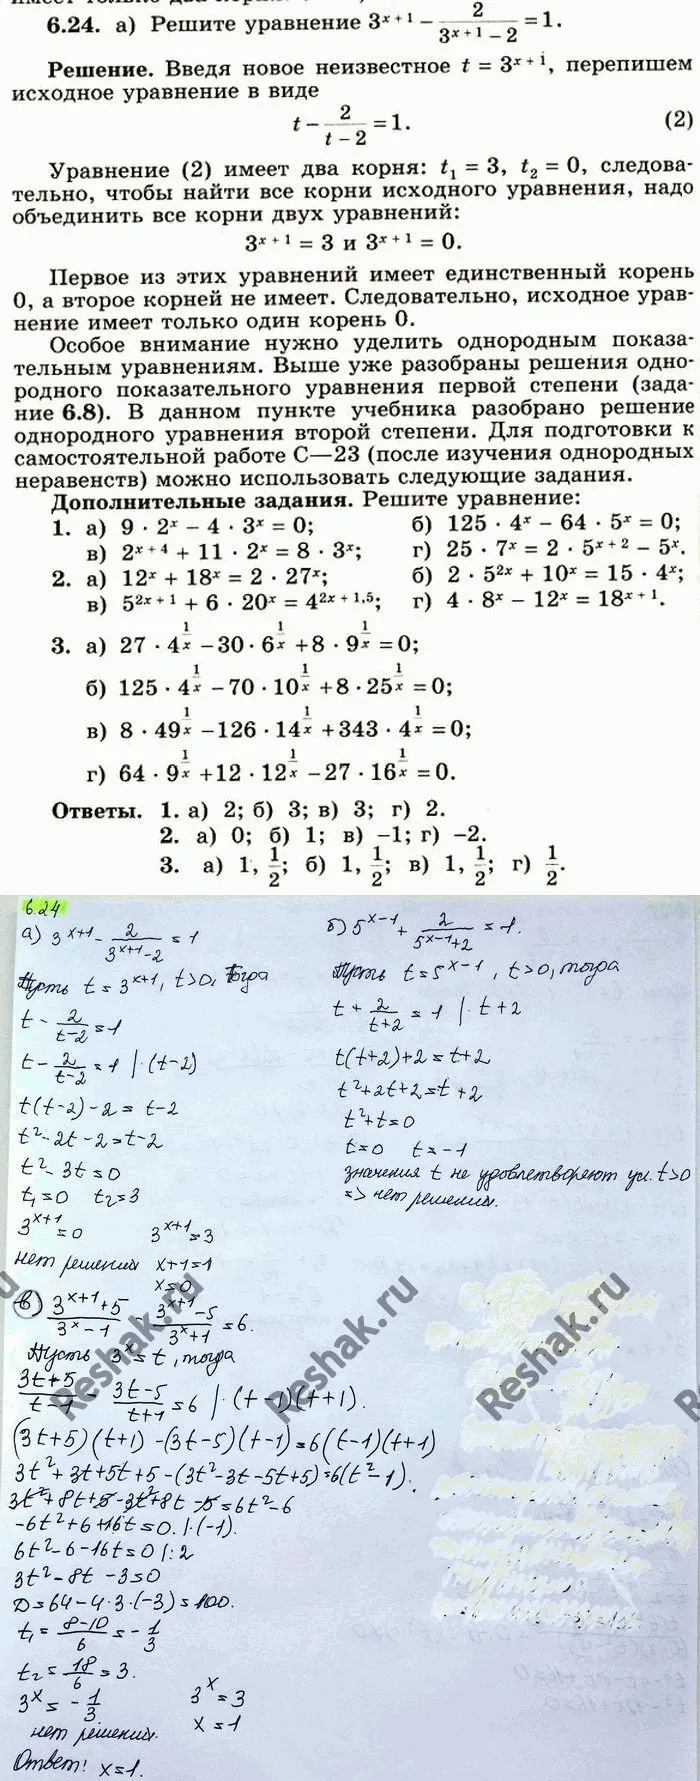 6.24. а) Решите уравнение 3^{x+1} − \frac{2}{3^{x+1} − 2} = 1.
Решение. Введя новое неизвестное t = 3^{x+1}, перепишем
исходное уравнение в виде
t − \frac{2}{t − 2} = 1. (2)
Уравнение (2) имеет два корня: t₁ = 3, t₂ = 0, следова-
тельно, чтобы найти все корни исходного уравнения, надо
объединить все корни двух уравнений:
3^{x+1} = 3 и 3^{x+1} = 0.
Первое из этих уравнений имеет единственный корень
0, а второе корней не имеет. Следовательно, исходное урав-
нение имеет только один корень 0.
Особое внимание нужно уделить однородным показа-
тельным уравнениям. Выше уже разобраны решения одно-
родного показательного уравнения первой степени (зада-
ние 6.8). В данном пункте учебника разобрано решение
однородного уравнения второй степени. Для подготовки к
самостоятельной работе С—23 (после изучения однородных
неравенств) можно использовать следующие задания.
Дополнительные задания. Решите уравнение:
1. а) 9 · 2^x − 4 · 3^x = 0; б) 125 · 4^x − 64 · 5^x = 0;
в) 2^{x+4} + 11 · 2^x = 8 · 3^x; г) 25 · 7^x = 2 · 5^{x+2} − 5^x.
2. а) 12^x + 18^x = 2 · 27^x; б) 2 · 5^{2x} + 10^x = 15 · 4^x;
в) 5^{2x+1} + 6 · 20^x = 4^{2x+1,5}; г) 4 · 8^x − 12^x = 18^{x+1}.
3. а) 27 · 4^{1/x} − 30 · 6^{1/x} + 8 · 9^{1/x} = 0;
б) 125 · 4^{1/x} − 70 · 10^{1/x} + 8 · 25^{1/x} = 0;
в) 8 · 49^{1/x} − 126 · 14^{1/x} + 343 · 4^{1/x} = 0;
г) 64 · 9^{1/x} + 12 · 12^{1/x} − 27 · 16^{1/x} = 0.
Ответы. 1. а) 2; б) 3; в) 3; г) 2.
2. а) 0; б) 1; в) −1; г) −2.
3. а) 1, 1/2; б) 1, 1/2; в) 1, 1/2; г) 1/2.
6.24
а) 3^{x+1} − \frac{2}{3^{x+1} − 2} = 1
Пусть t = 3^{x+1}, t>0, тогда
t − \frac{2}{t−2} = 1
t − \frac{2}{t−2} = 1 | ·(t−2)
t(t−2) − 2 = t−2
t² − 2t − 2 = t−2
t² − 3t = 0
t₁ = 0 t₂ = 3
3^{x+1} = 0 3^{x+1} = 3
нет решений x+1=1
x=0
б) 5^{x−1} + \frac{2}{5^{x−1}+2} = 1.
Пусть t = 5^{x−1}, t>0, тогда
t + \frac{2}{t+2} = 1 | · t+2
t(t+2)+2 = t+2
t²+2t+2 = t+2
t²+t=0
t=0 t=−1
значения t не удовлетворяют ус. t>0
=> нет решений.
в) \frac{3^{x+1}+5}{3^x−1} \frac{3^{x+1}−5}{3^x+1} = 6.
Пусть 3^x = t, тогда
\frac{3t+5}{t−1} − \frac{3t−5}{t+1} = 6 | ·(t−1)(t+1).
(3t+5)(t+1) − (3t−5)(t−1) = 6(t−1)(t+1)
3t²+3t+5t+5 − (3t²−3t−5t+5) = 6(t²−1).
3t²+8t+5−3t²+8t−5 = 6t²−6
−6t²+6+16t=0. | ·(−1).
6t²−6−16t=0 | :2
3t²−8t−3=0
D = 64−4·3·(−3) = 100.
t₁ = \frac{8−10}{6} = −\frac{1}{3}
t₂ = \frac{18}{6} = 3.
3^x = −\frac{1}{3} 3^x = 3
нет решений. x = 1
Ответ: x=1.
Reshak.ru
Reshak.ru
Reshak.ru